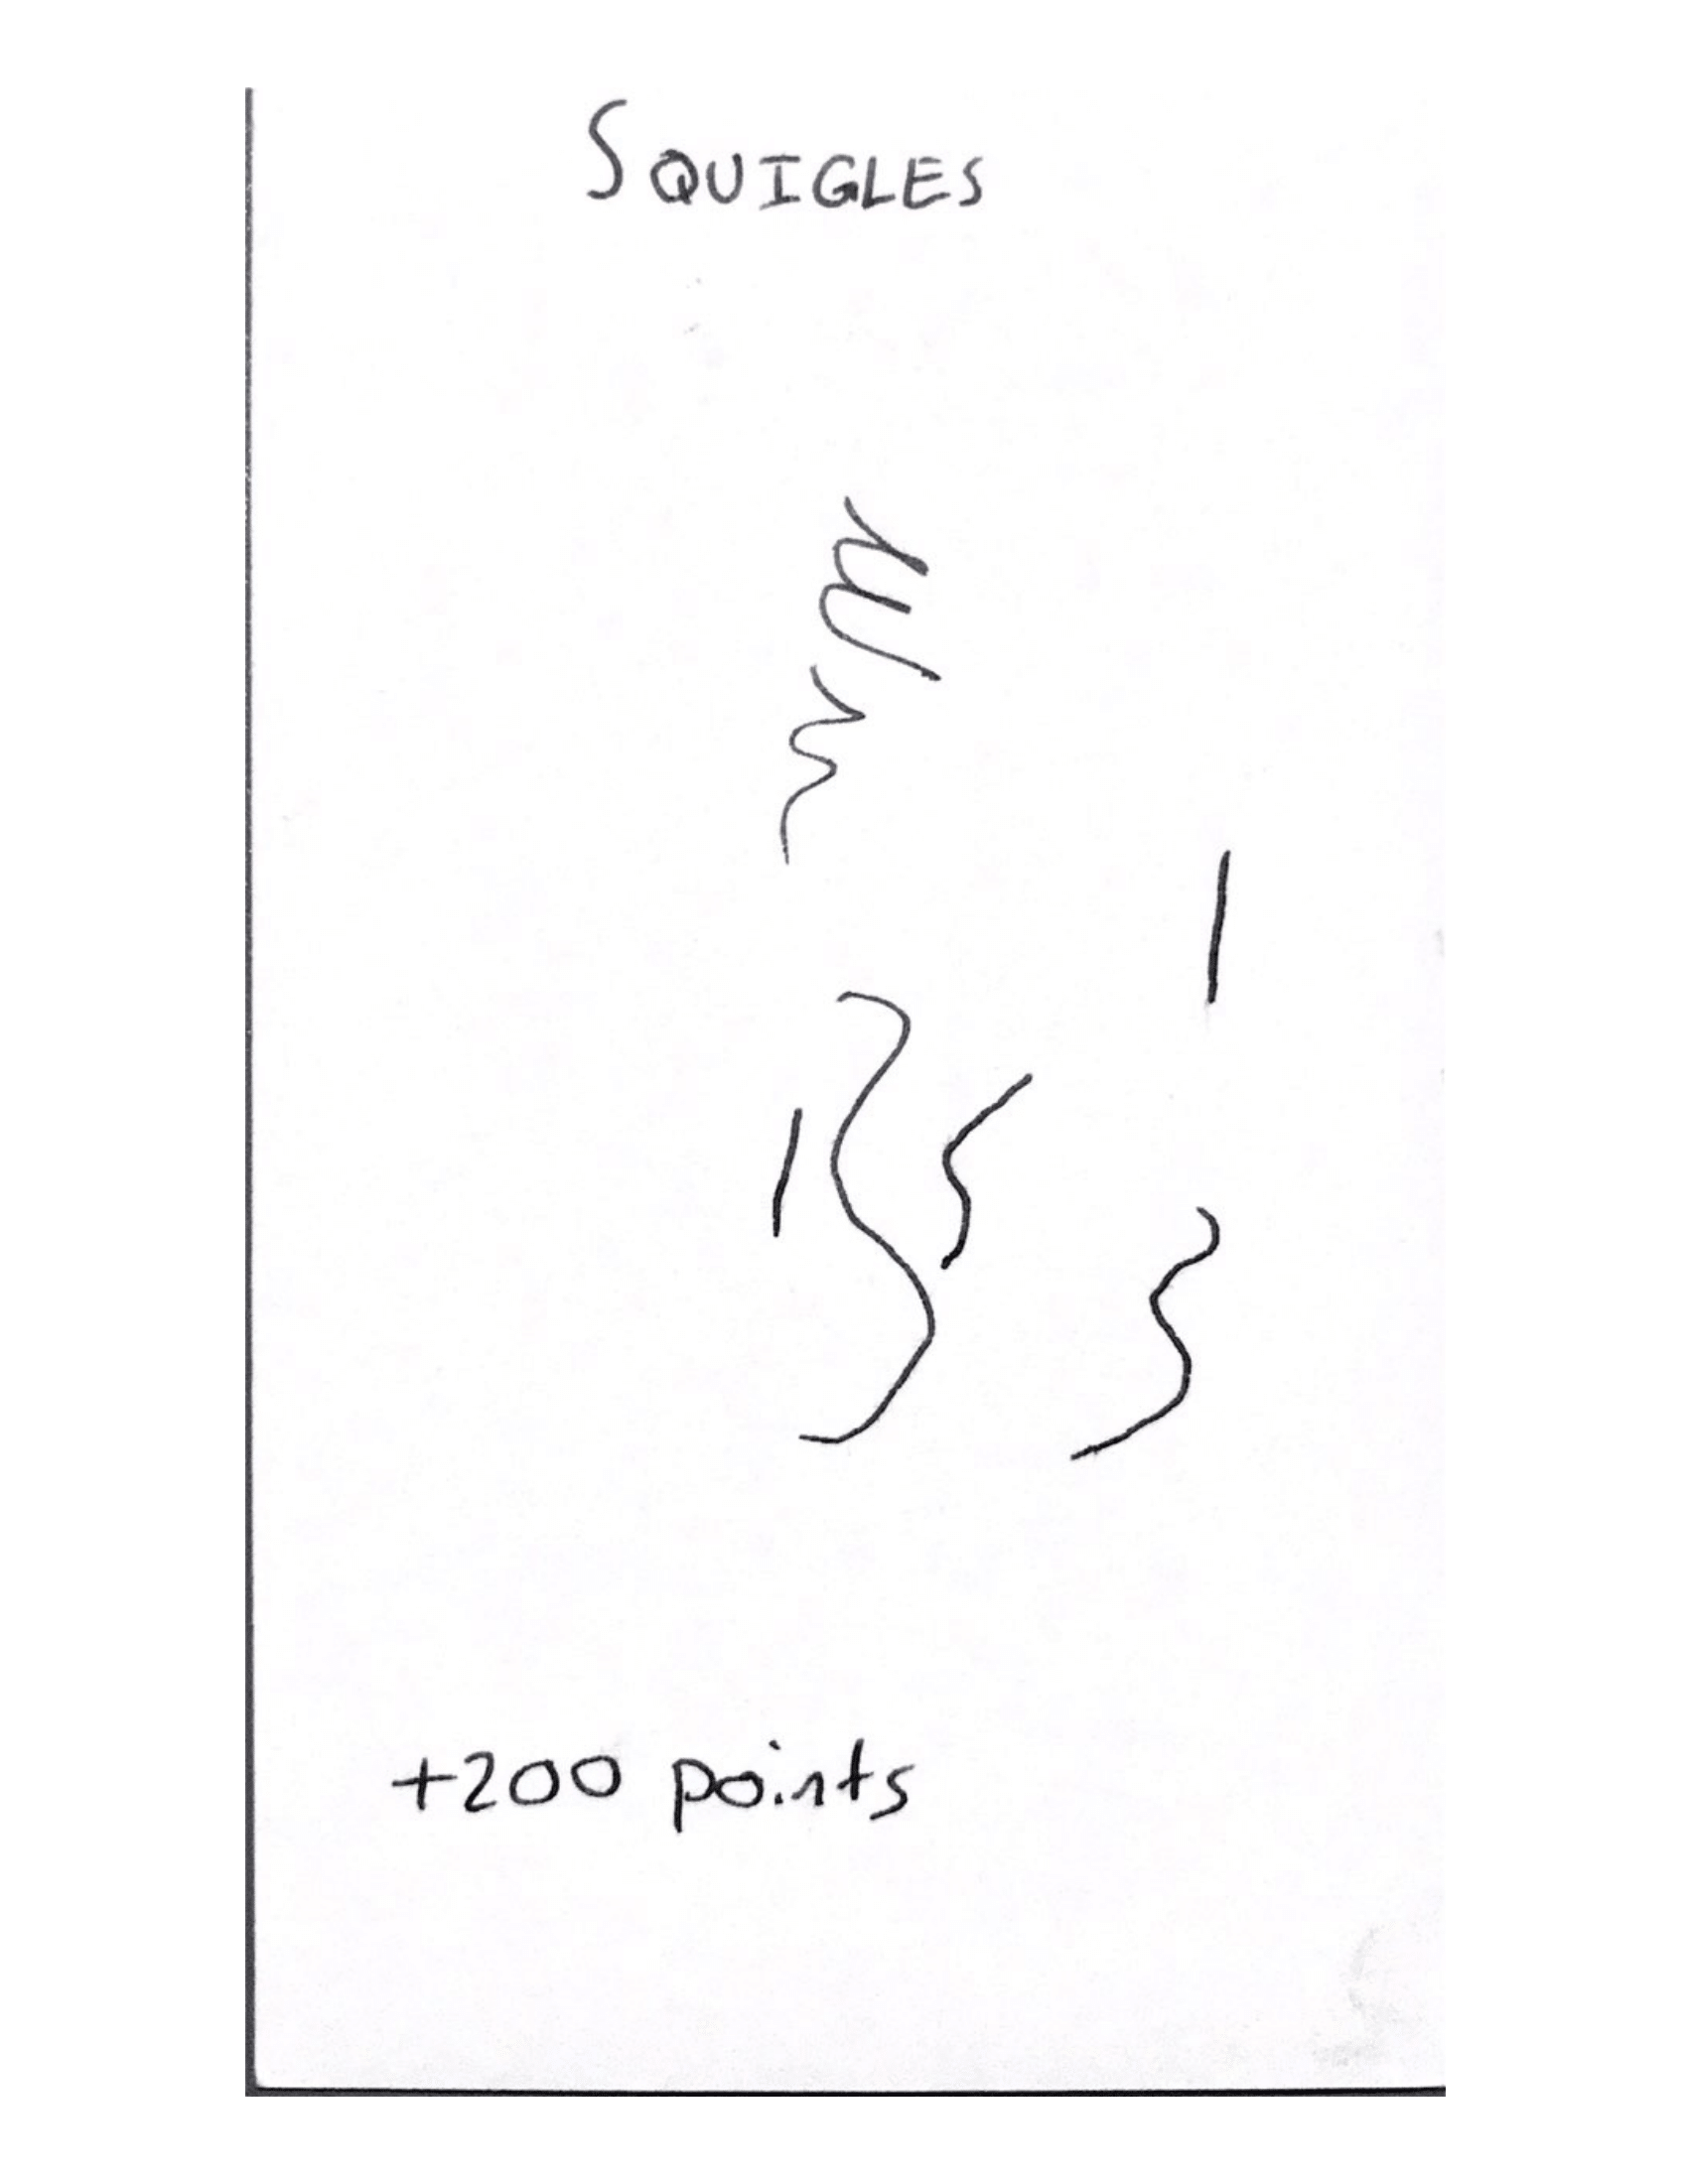 SQUIGLES
+200 points